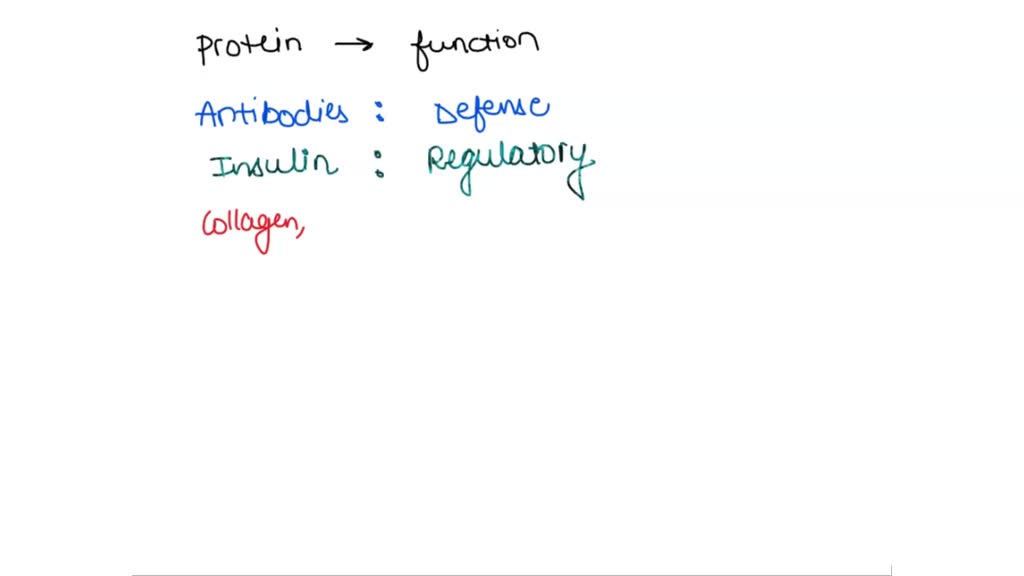 Protein → function
Antibodies : Defense
Insulin : Regulatory
Collagen,